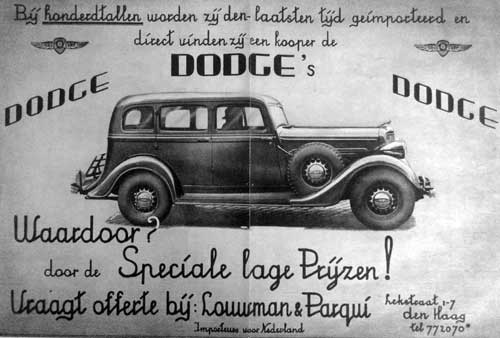 Bij honderdtallen worden zij den laatsten tijd geïmporteerd en
direct vinden zij een kooper de
DODGE's
DODGE
DODGE
Waardoor?
door de Speciale lage Prijzen!
Vraagt offerte bij: Louwman & Parqui
Importeurs voor Nederland
Lekstraat 1-7
den Haag
tel 772070*